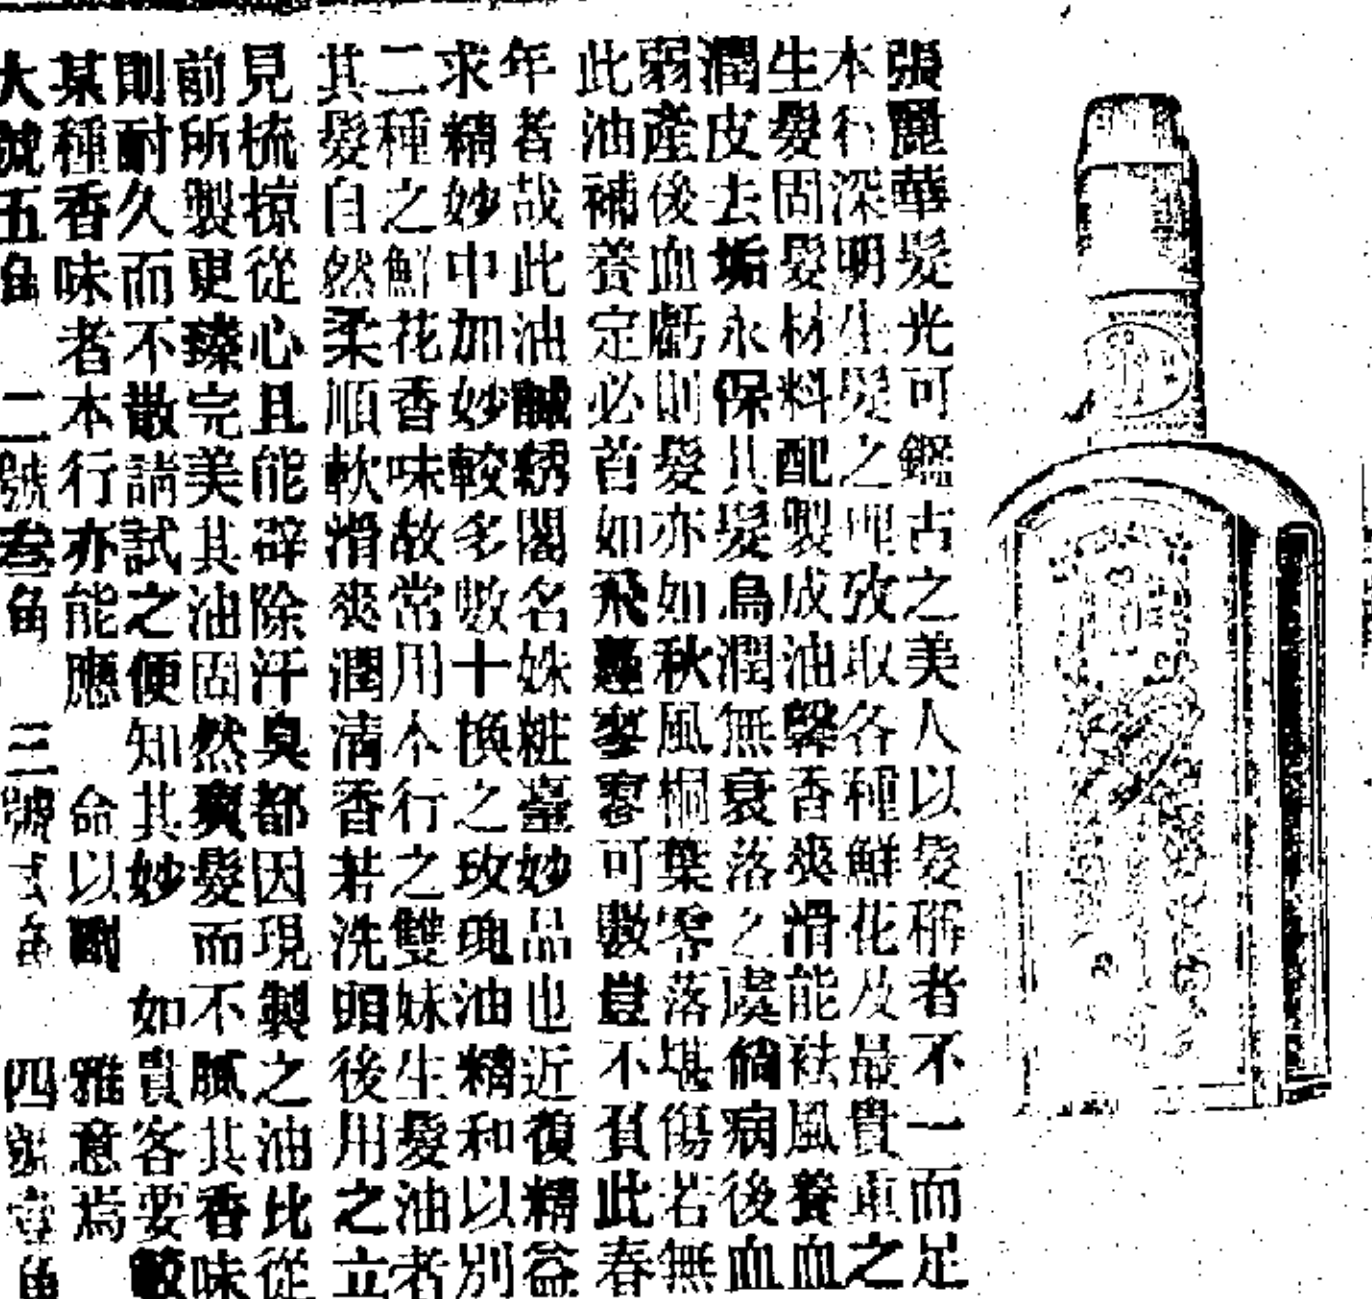 張麗華髮光可鑑古之美人以髮稱者不一而足
本行深明生髮之理攷取各種鮮花及最貴重之
生髮固髮材料配製成油馨香爽滑能祛風養血
潤皮去垢永保其髮烏潤無衰落之虞倘病後血
弱產後血虧則髮亦如秋風桐葉零落堪傷若無
此油補養定必首如飛蓬寥寥可數豈不負此春
年者哉此油誠綉閣名姝粧臺妙品也近復精益
求精妙中加妙較多數十換之玫瑰油精和以別
二種之鮮花香味故常用本行之雙妹生髮油者
其髮自然柔順軟滑爽潤清香若洗頭後用之立
見梳掠從心且能辟除汗臭都因現製之油比從
前所製更臻完美其油固然爽髮而不膩其香味
則耐久而不散請試之便知其妙 如貴客要
某種香味者本行亦能應 命以 雅意焉
大號五角 二號叁角 三號弍角 四號壹角